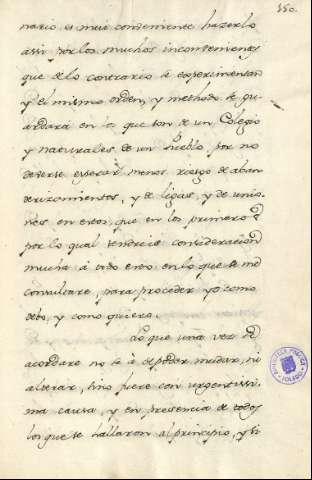 350.
nario es mui conveniente hazerlo
assi por los muchos inconvenientes
que de lo contrario se experimentan
y el mismo orden, y methodo se gu
ardará en lo que son de un Colegio
y naturales de un Pueblo, por no
deverse esperar menos riesgo de aban
derizamientos, y de ligas, y de unio
nes en estos, que en los primeros
por lo qual tendreis consideracion
mucha á todo esto en lo que se me
consultare, para proceder yo como
debo, y como quiero.
Lo que una vez se
acordare no se á de poder mudar, ni
alterar, sino fuere con urgentissi
ma causa, y en presencia de todos
los que se hallaron al principio, y si
BIBLIOTECA PUBLICA
TOLEDO